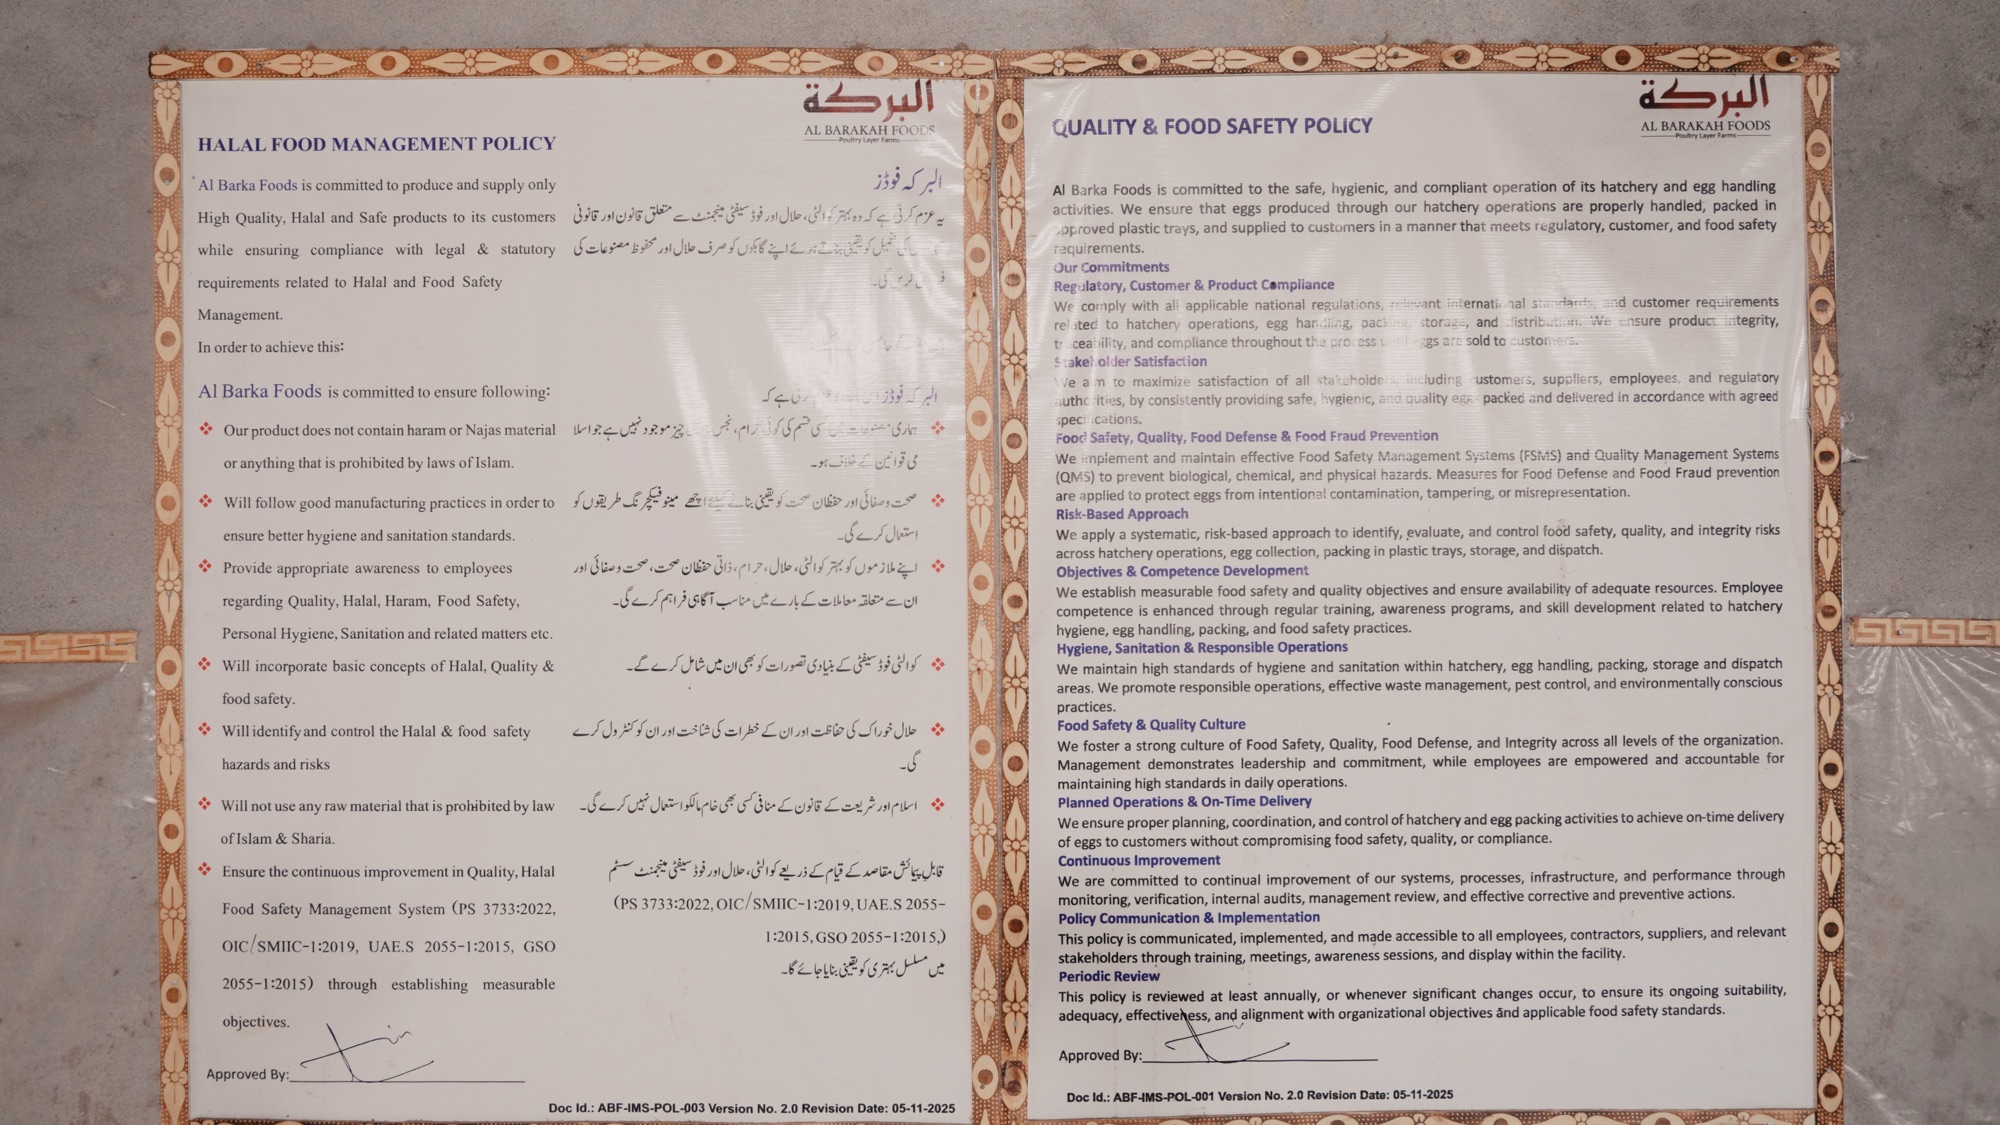 البركة
AL BARAKAH FOODS
Poultry Layer Farms
HALAL FOOD MANAGEMENT POLICY
Al Barka Foods is committed to produce and supply only
High Quality, Halal and Safe products to its customers
while ensuring compliance with legal & statutory
requirements related to Halal and Food Safety
Management.
In order to achieve this:
Al Barka Foods is committed to ensure following:
❖ Our product does not contain haram or Najas material
or anything that is prohibited by laws of Islam.
❖ Will follow good manufacturing practices in order to
ensure better hygiene and sanitation standards.
❖ Provide appropriate awareness to employees
regarding Quality, Halal, Haram, Food Safety,
Personal Hygiene, Sanitation and related matters etc.
❖ Will incorporate basic concepts of Halal, Quality &
food safety.
❖ Will identify and control the Halal & food safety
hazards and risks
❖ Will not use any raw material that is prohibited by law
of Islam & Sharia.
❖ Ensure the continuous improvement in Quality, Halal
Food Safety Management System (PS 3733:2022,
OIC/SMIIC-1:2019, UAE.S 2055-1:2015, GSO
2055-1:2015) through establishing measurable
objectives.
البرکہ فوڈز
یہ عزم کرتی ہے کہ وہ بہتر کوالٹی، حلال اور فوڈ سیفٹی مینجمنٹ سے متعلق قانون اور قانونی
کی تعمیل کو یقینی بناتے ہوئے اپنے گاہکوں کو صرف حلال اور محفوظ مصنوعات کی
کریں گی۔
البرکہ فوڈز ہے کہ
❖ ہماری میں کسی قسم کی کوئی حرام، نجس چیز موجود نہیں ہے جو اسلا
می قوانین کے خلاف ہو۔
❖ صحت و صفائی اور حفظان صحت کو یقینی بنانے کیلئے اچھے مینوفیکچرنگ طریقوں کو
استعمال کرے گی۔
❖ اپنے ملازموں کو بہتر کوالٹی، حلال، حرام، ذاتی حفظان صحت، صحت و صفائی اور
ان سے متعلقہ معاملات کے بارے میں مناسب آگاہی فراہم کرے گی۔
❖ کوالٹی فوڈ سیفٹی کے بنیادی تصورات کو بھی ان میں شامل کرے گے۔
❖ حلال خوراک کی حفاظت اور ان کے خطرات کی شناخت اور ان کو کنٹرول کرے
گی۔
❖ اسلام اور شریعت کے قانون کے منافی کسی بھی خام مال کو استعمال نہیں کرے گی۔
قابل پیمائش مقاصد کے قیام کے ذریعے کوالٹی، حلال اور فوڈ سیفٹی مینجمنٹ سسٹم
(PS 3733:2022, OIC/SMIIC-1:2019, UAE.S 2055-
1:2015, GSO 2055-1:2015,)
میں مسلسل بہتری کو یقینی بنایا جائے گا۔
Approved By:
Doc Id.: ABF-IMS-POL-003 Version No. 2.0 Revision Date: 05-11-2025
البركة
AL BARAKAH FOODS
Poultry Layer Farms
QUALITY & FOOD SAFETY POLICY
Al Barka Foods is committed to the safe, hygienic, and compliant operation of its hatchery and egg handling
activities. We ensure that eggs produced through our hatchery operations are properly handled, packed in
approved plastic trays, and supplied to customers in a manner that meets regulatory, customer, and food safety
requirements.
Our Commitments
Regulatory, Customer & Product Compliance
We comply with all applicable national regulations, relevant international standards, and customer requirements
related to hatchery operations, egg handling, packing, storage, and distribution. We ensure product integrity,
traceability, and compliance throughout the process until eggs are sold to customers.
Stakeholder Satisfaction
We aim to maximize satisfaction of all stakeholders, including customers, suppliers, employees, and regulatory
authorities, by consistently providing safe, hygienic, and quality eggs packed and delivered in accordance with agreed
specifications.
Food Safety, Quality, Food Defense & Food Fraud Prevention
We implement and maintain effective Food Safety Management Systems (FSMS) and Quality Management Systems
(QMS) to prevent biological, chemical, and physical hazards. Measures for Food Defense and Food Fraud prevention
are applied to protect eggs from intentional contamination, tampering, or misrepresentation.
Risk-Based Approach
We apply a systematic, risk-based approach to identify, evaluate, and control food safety, quality, and integrity risks
across hatchery operations, egg collection, packing in plastic trays, storage, and dispatch.
Objectives & Competence Development
We establish measurable food safety and quality objectives and ensure availability of adequate resources. Employee
competence is enhanced through regular training, awareness programs, and skill development related to hatchery
hygiene, egg handling, packing, and food safety practices.
Hygiene, Sanitation & Responsible Operations
We maintain high standards of hygiene and sanitation within hatchery, egg handling, packing, storage and dispatch
areas. We promote responsible operations, effective waste management, pest control, and environmentally conscious
practices.
Food Safety & Quality Culture
We foster a strong culture of Food Safety, Quality, Food Defense, and Integrity across all levels of the organization.
Management demonstrates leadership and commitment, while employees are empowered and accountable for
maintaining high standards in daily operations.
Planned Operations & On-Time Delivery
We ensure proper planning, coordination, and control of hatchery and egg packing activities to achieve on-time delivery
of eggs to customers without compromising food safety, quality, or compliance.
Continuous Improvement
We are committed to continual improvement of our systems, processes, infrastructure, and performance through
monitoring, verification, internal audits, management review, and effective corrective and preventive actions.
Policy Communication & Implementation
This policy is communicated, implemented, and made accessible to all employees, contractors, suppliers, and relevant
stakeholders through training, meetings, awareness sessions, and display within the facility.
Periodic Review
This policy is reviewed at least annually, or whenever significant changes occur, to ensure its ongoing suitability,
adequacy, effectiveness, and alignment with organizational objectives and applicable food safety standards.
Approved By:
Doc Id.: ABF-IMS-POL-001 Version No. 2.0 Revision Date: 05-11-2025